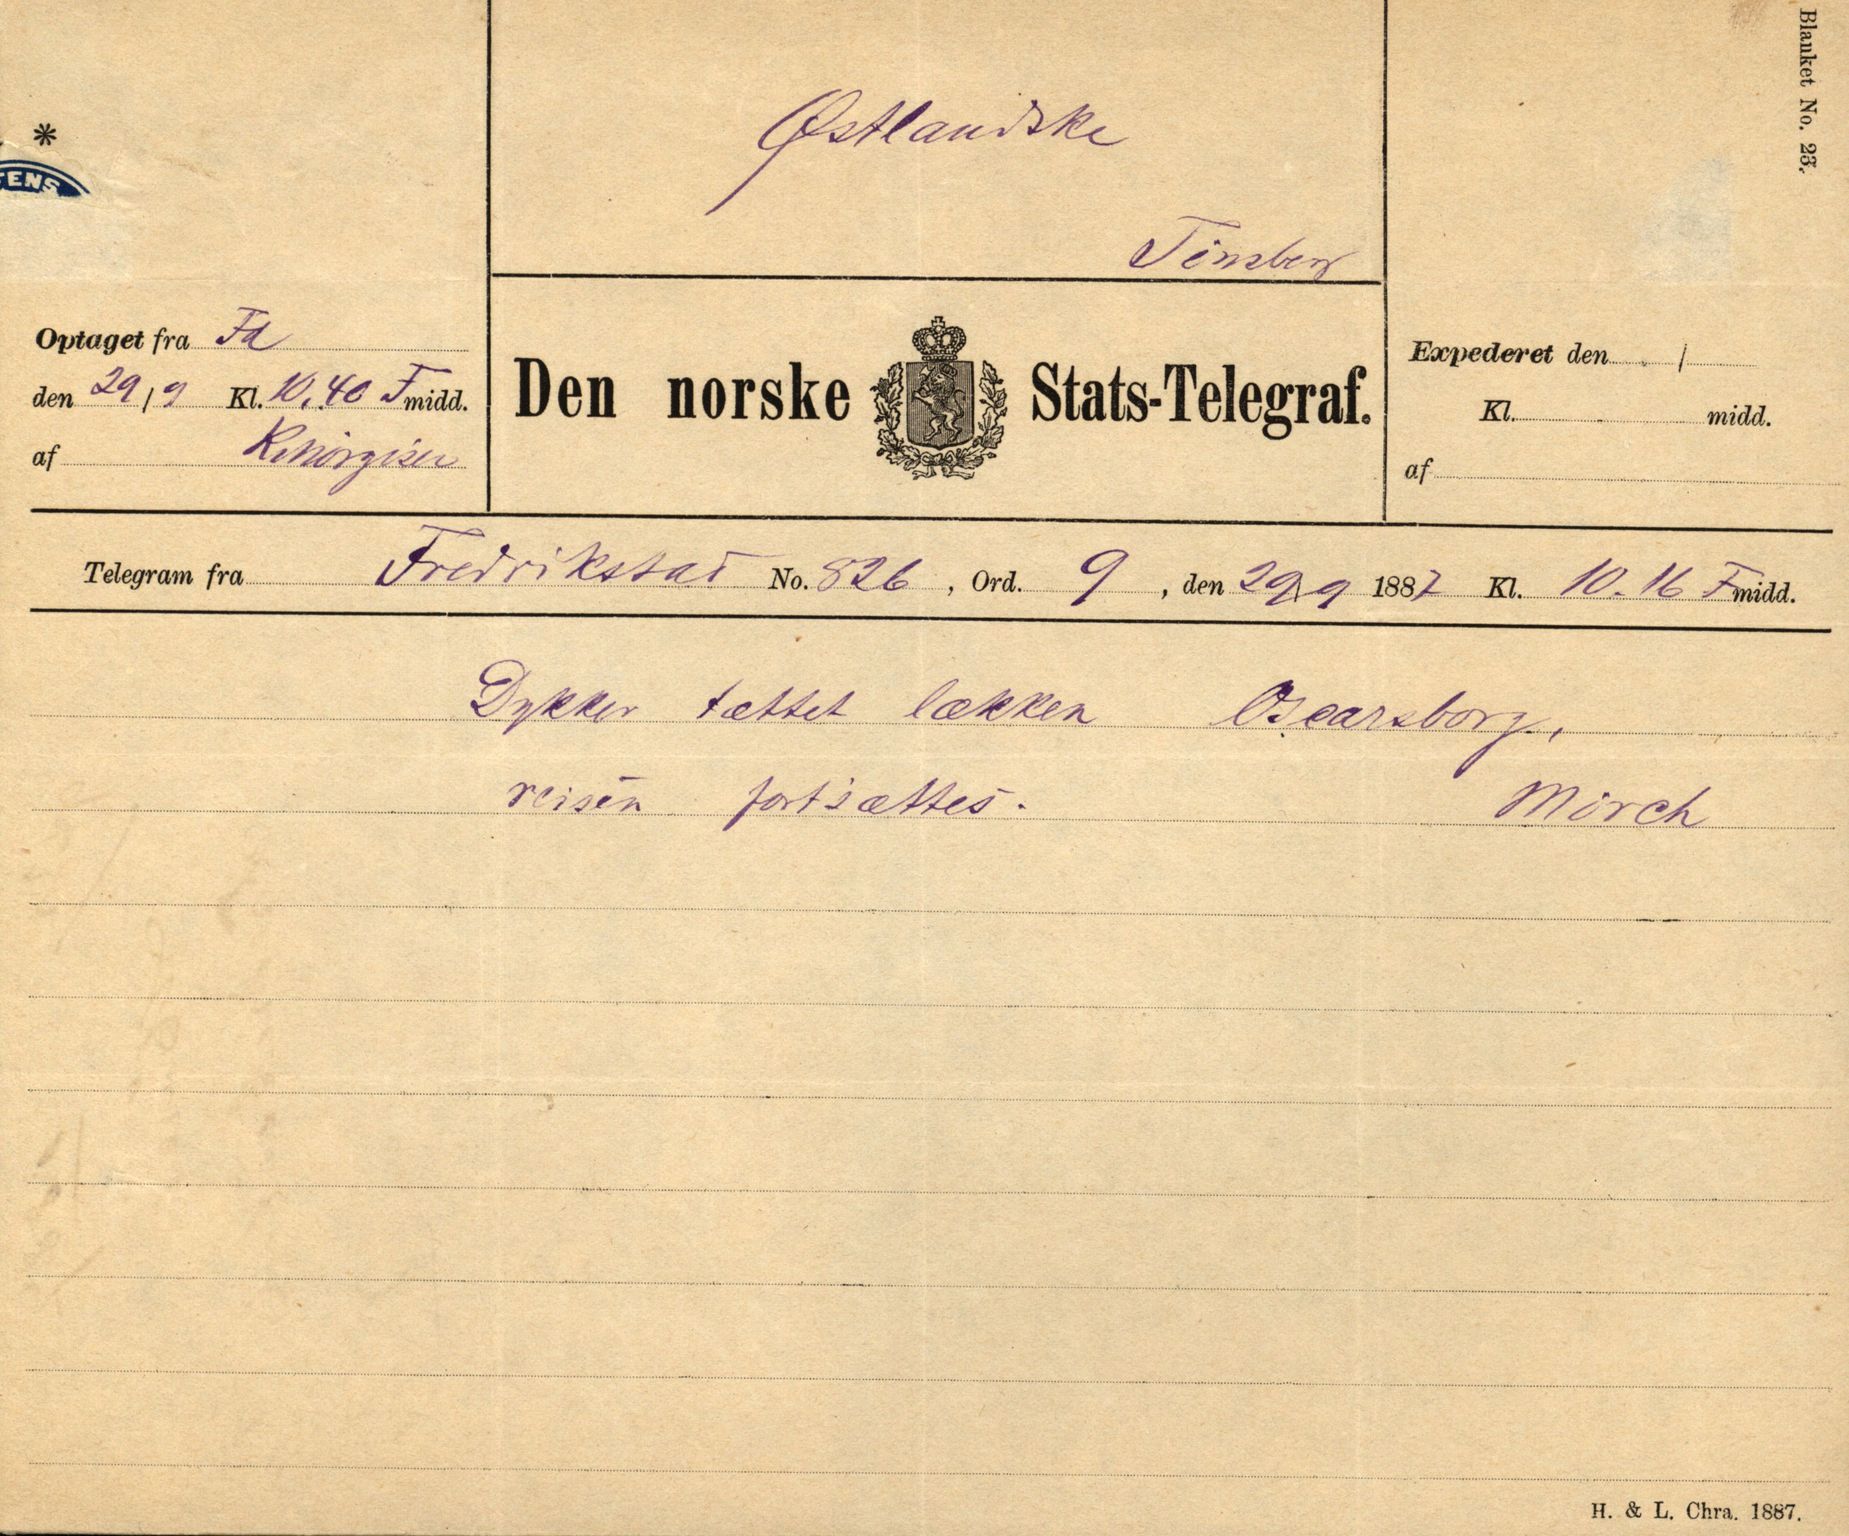 Blanket No. 23.
*
TENS
Østlandske
Tönsberg
Optaget fra Fd
den 29/9 Kl. 10.40 Fmidd.
af
Den norske Stats-Telegraf.
Expederet den /
Kl. midd.
af
Telegram fra Fredrikstad No. 826, Ord. 9, den 29/9 1887 Kl. 10.16 Fmidd.
Dykker tættet lækken Oscarsborg,
reisen fortsættes. Mörch
H. & L. Chra. 1887.